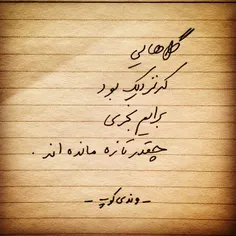 گل‌هایی
که نزدیک بود
برایم بخری
چقدر تازه مانده اند .
- وندی کوپ -